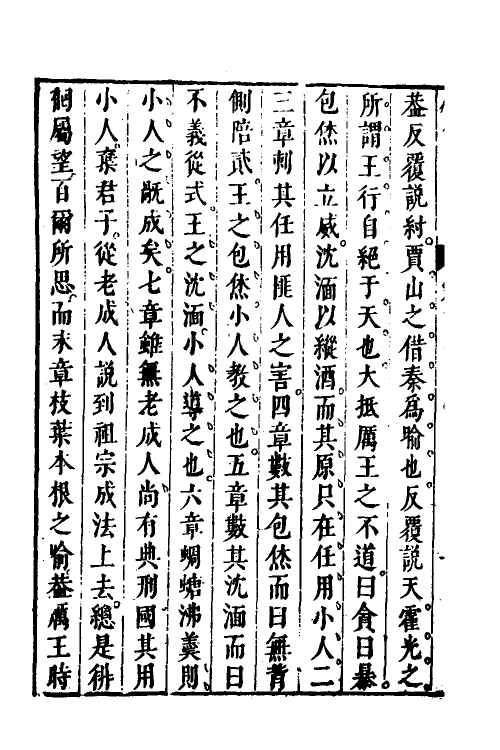 葢反覆說紂賈山之借秦爲喻也反覆說天霍光之
所謂王行自絕于天也大抵厲王之不道曰貪曰暴
包烋以立威沈湎以縱酒而其原只在任用小人二
三章刺其任用匪人之害四章數其包烋而曰無背
側陪貳王之包烋小人教之也五章數其沈湎而曰
不義從式王之沈湎小人導之也六章蜩螗沸羹則
小人之戲成矣七章雖無老成人尚有典刑國其用
小人棄君子從老成人說到祖宗成法上去總是徘
徊屬望百爾所思而末章枝葉本根之喻葢厲王時